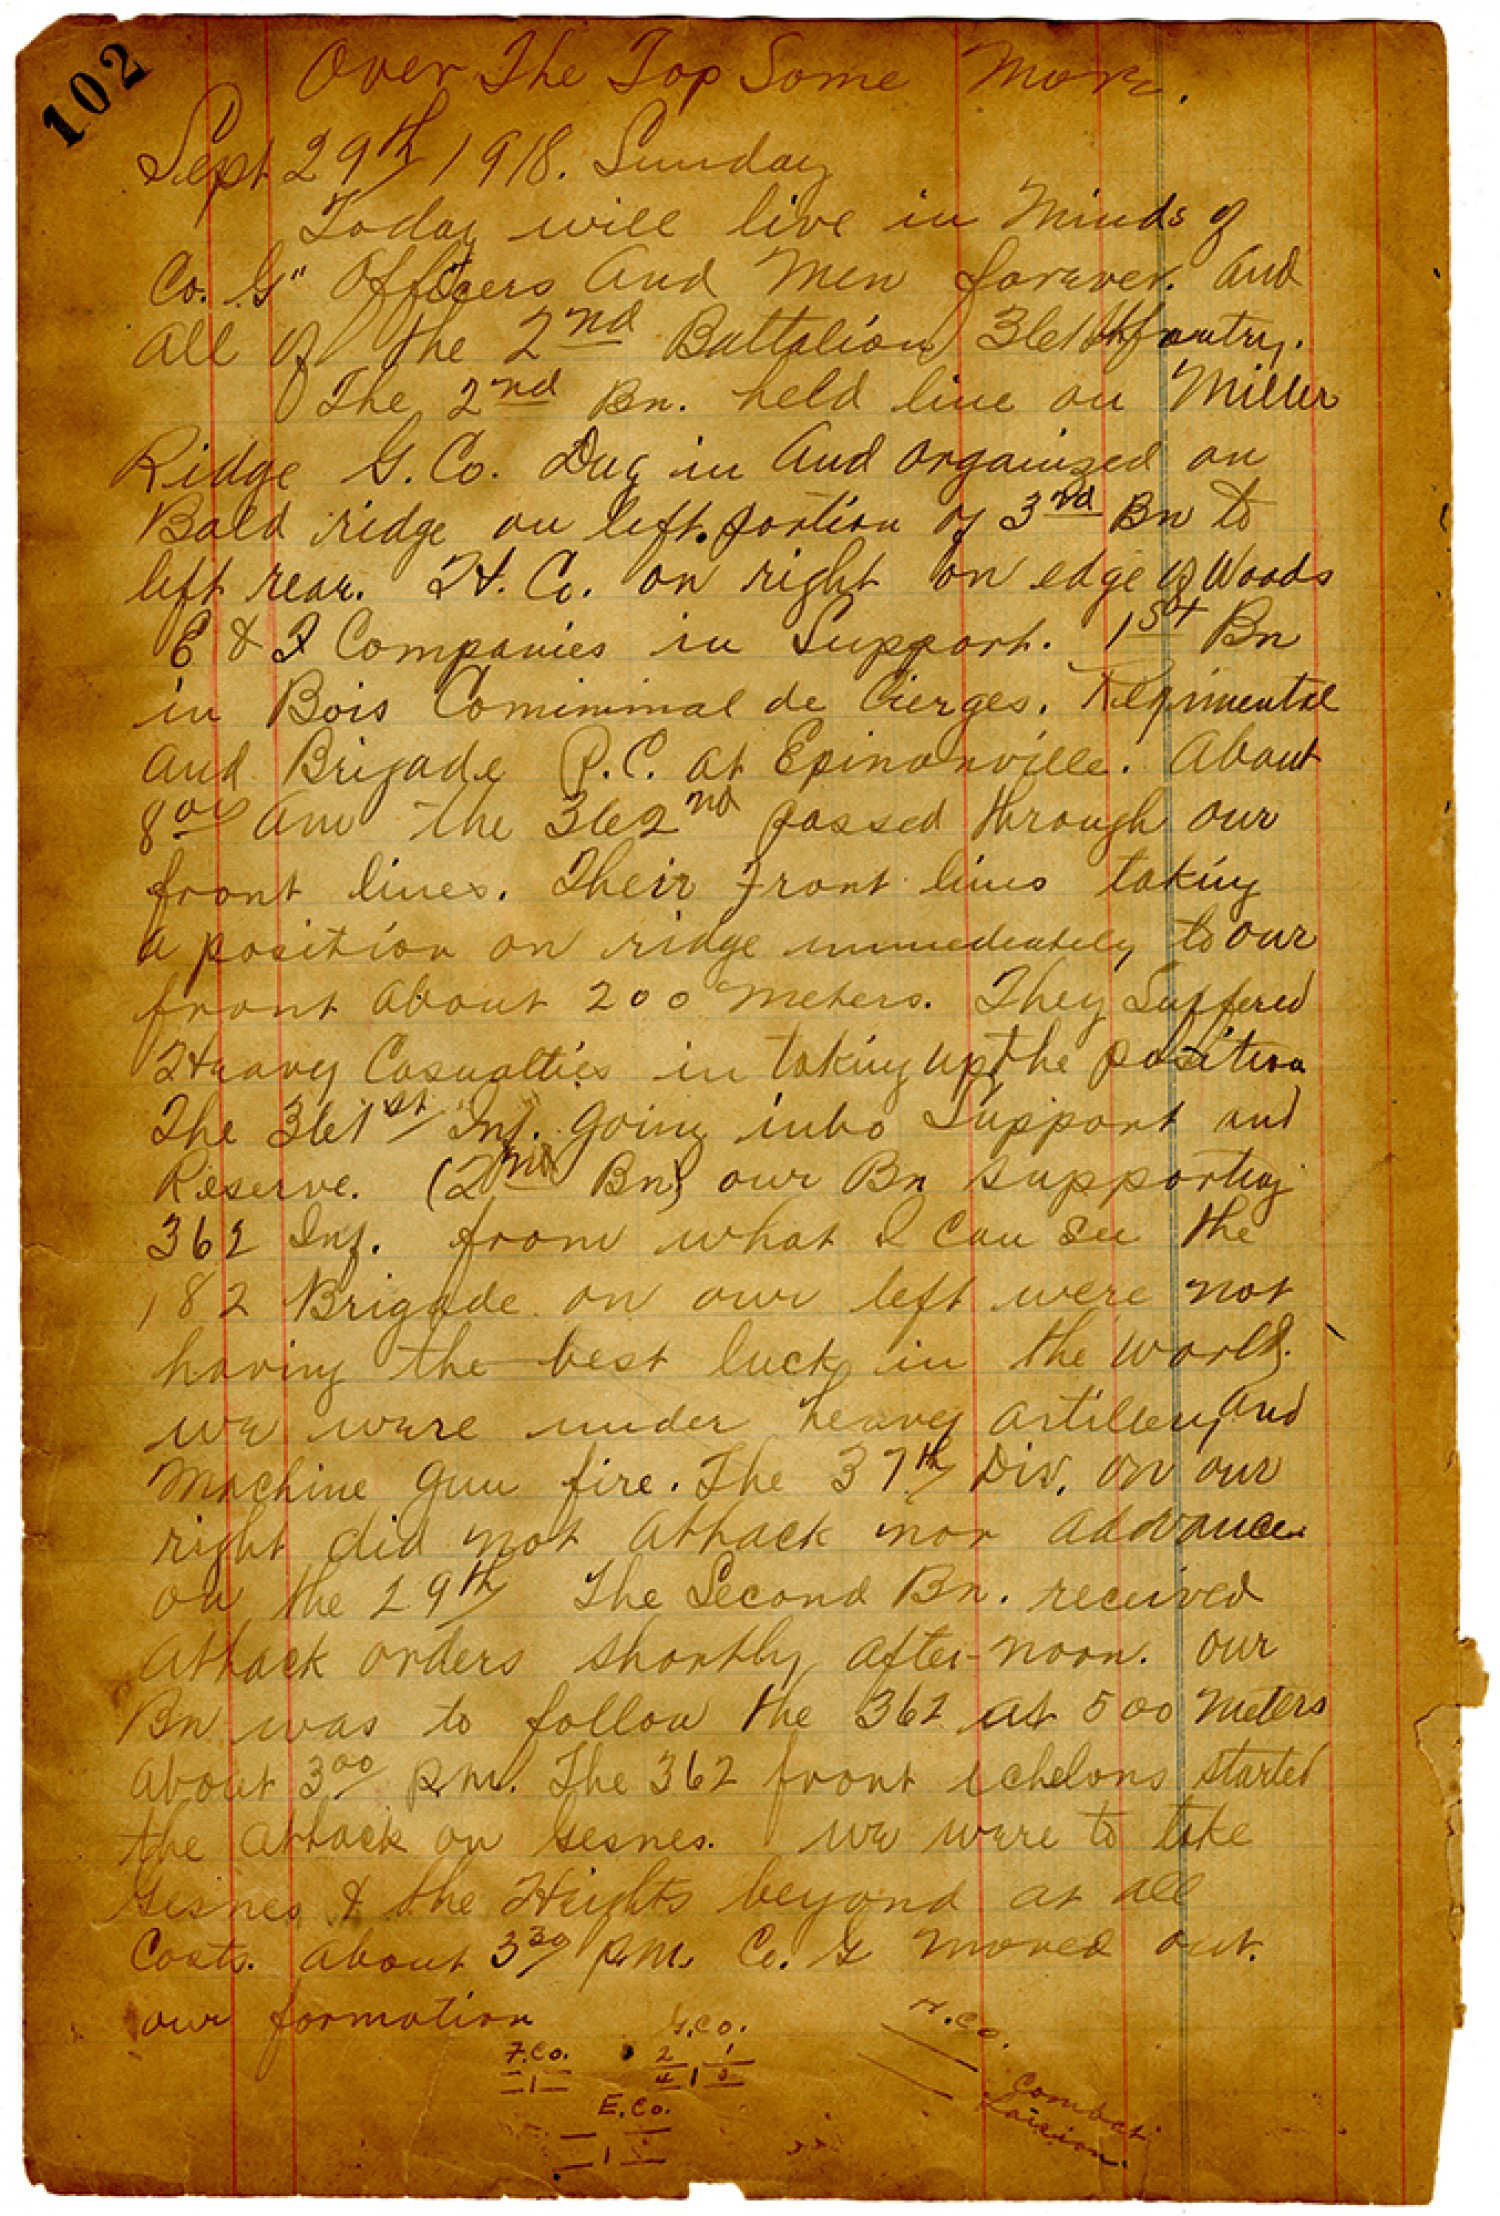 102
Over The Top Some More.
Sept 29th 1918. Sunday
Today will live in Minds of
Co. "G" Officers And Men forever. And
All of the 2nd Battalion 361 Infantry.
The 2nd Bn. held line on Miller
Ridge G. Co. Dug in And organized on
Bald ridge on left. portion of 3rd Bn to
left rear. H. Co. on right on edge of Woods
E & F Companies in Support. 1st Bn
in Bois Comininal de Cierges. Regimental
And Brigade P.C. at Epinonville. About
8 00 Am the 362nd passed through our
front lines. Their Front lines taking
a position on ridge immediately to our
front About 200 meters. They Suffered
Heavey Casualties in taking up the position
The 361st Inf. going into Support and
Reserve. (2nd Bn) our Bn supporting
362 Inf. from what I can see the
182 Brigade on our left were not
having the best luck in the world.
we were under heavey artillery and
Machine gun fire. The 37th Div. on our
right did not Attack nor Addvance
on the 29th The Second Bn. received
Attack orders shortly after-noon. our
Bn was to follow the 362 at 500 meters
About 3 00 p.m. The 362 front echelons started
the attack on Gesnes. we were to take
Gesnes & the Heights beyond at all
Costs. About 3 30 P.M. Co. G moved out.
our formation
G.Co. H.Co.
F.Co. 2 1
1 4 1 3
E.Co. Combat
Laision.
1